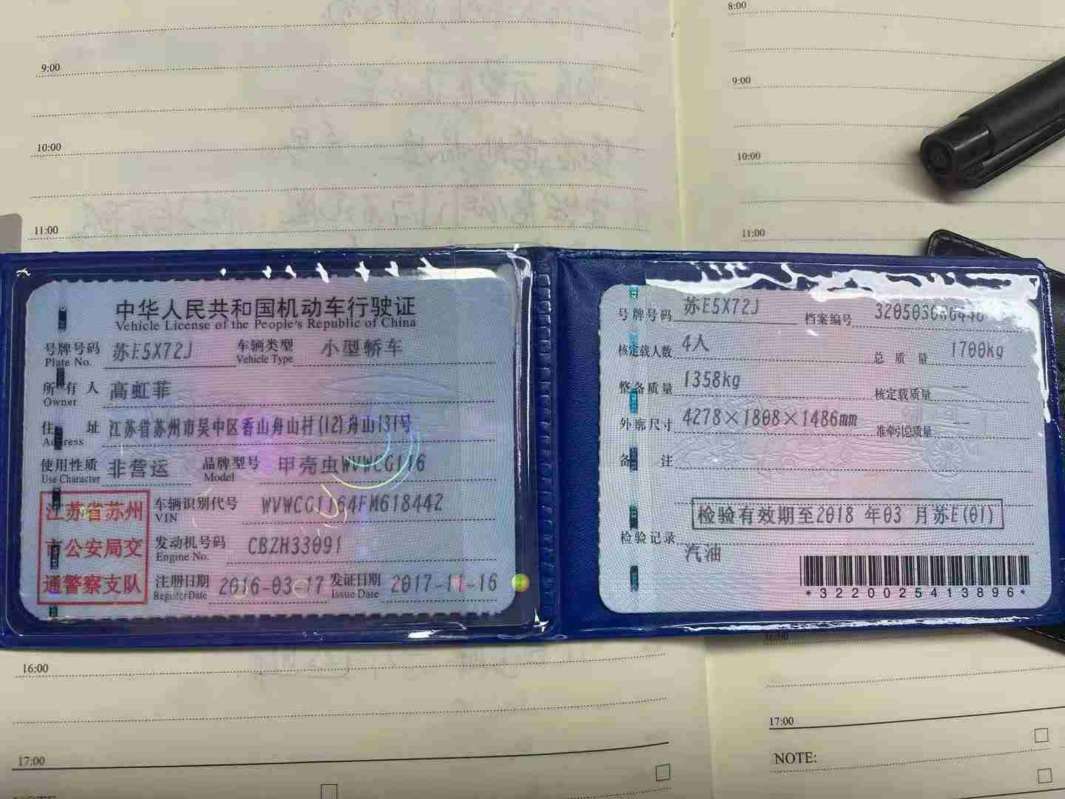 8:00
9:00
9:00
10:00
10:00
11:00
11:00
中华人民共和国机动车行驶证
Vehicle License of the People's Republic of China
号牌号码 苏E5X72J 车辆类型 小型轿车
Plate No. Vehicle Type
所有人 高虹菲
Owner
住址 江苏省苏州市吴中区香山舟山村(12)舟山131号
Address
使用性质 非营运 品牌型号 甲壳虫WVWCG116
Use Character Model
江苏省苏州
市公安局交
通警察支队
车辆识别代号 WVWCG1164FM618442
VIN
发动机号码 CBZH33091
Engine No.
注册日期 2016-03-17 发证日期 2017-11-16
Register Date Issue Date
号牌号码 苏E5X72J 档案编号
核定载人数 4人 总质量 1700kg
整备质量 1358kg 核定载质量 --
外廓尺寸 4278×1808×1486mm 准牵引总质量 --
备注
检验有效期至2018年03月苏E(01)
检验记录
汽油
*3220025413896*
16:00
17:00
17:00
NOTE: